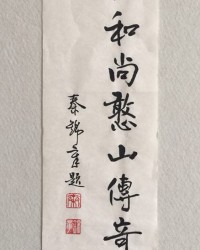 和尚憨山傳奇
秦錦章題